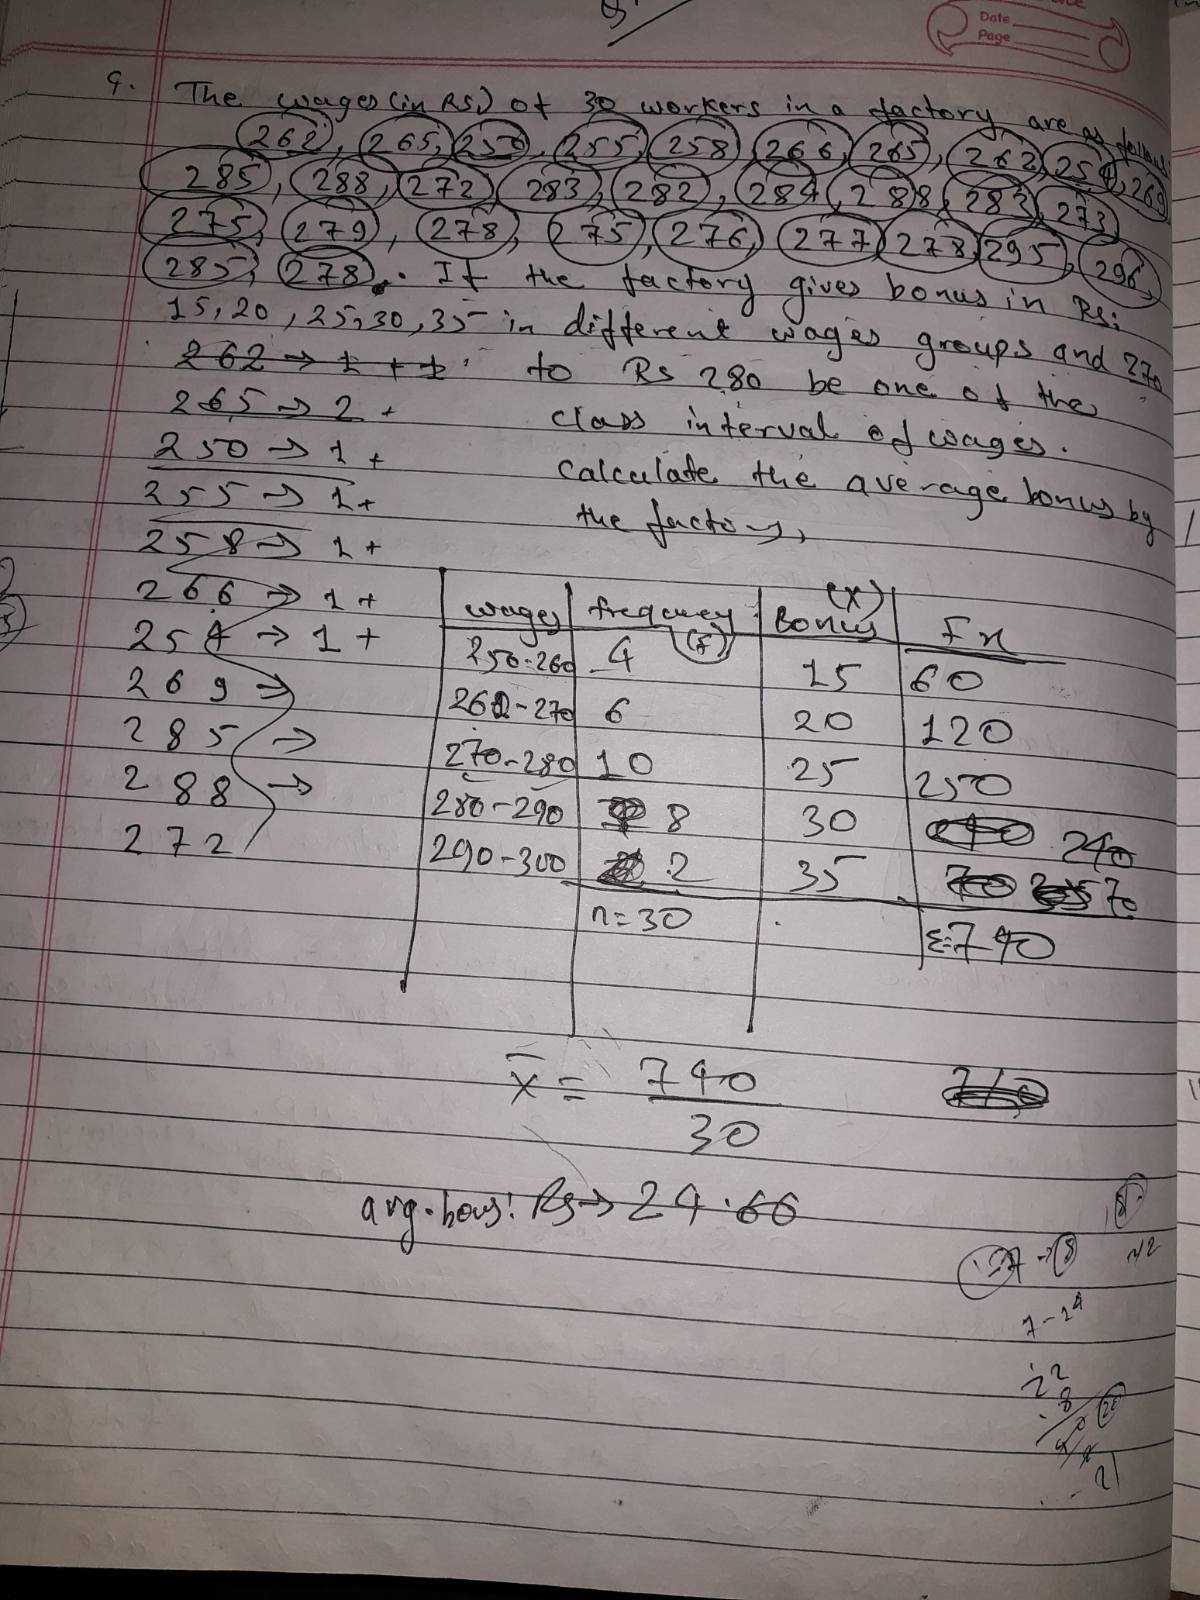 Date
Page
9. The wages (in RS.) of 30 workers in a factory are as follows
262, 265, 250, 255, 258, 266, 265, 262, 254, 269
285, 288, 272, 283, 282, 284, 288, 283, 273
275, 279, 278, 275, 276, 277, 278, 295, 296,
285, 278. If the factory gives bonus in Rs:
15, 20, 25, 30, 35 in different wages groups and 270
to Rs 280 be one of the
class interval of wages.
calculate the average bonus by
the factory,
262 → 1 + 1
265 → 2 +
250 → 1 +
255 → 1 +
258 → 1 +
266 → 1 +
254 → 1 +
269 →
285 →
288 →
272
wages frequency (f) Bonus (X) Fx
250-260 4 15 60
262-270 6 20 120
270-280 10 25 250
280-290 8 30 240
290-300 2 35 70
n=30 Σ=740
x̄ = 740
30
avg. bons: Rs → 24.66